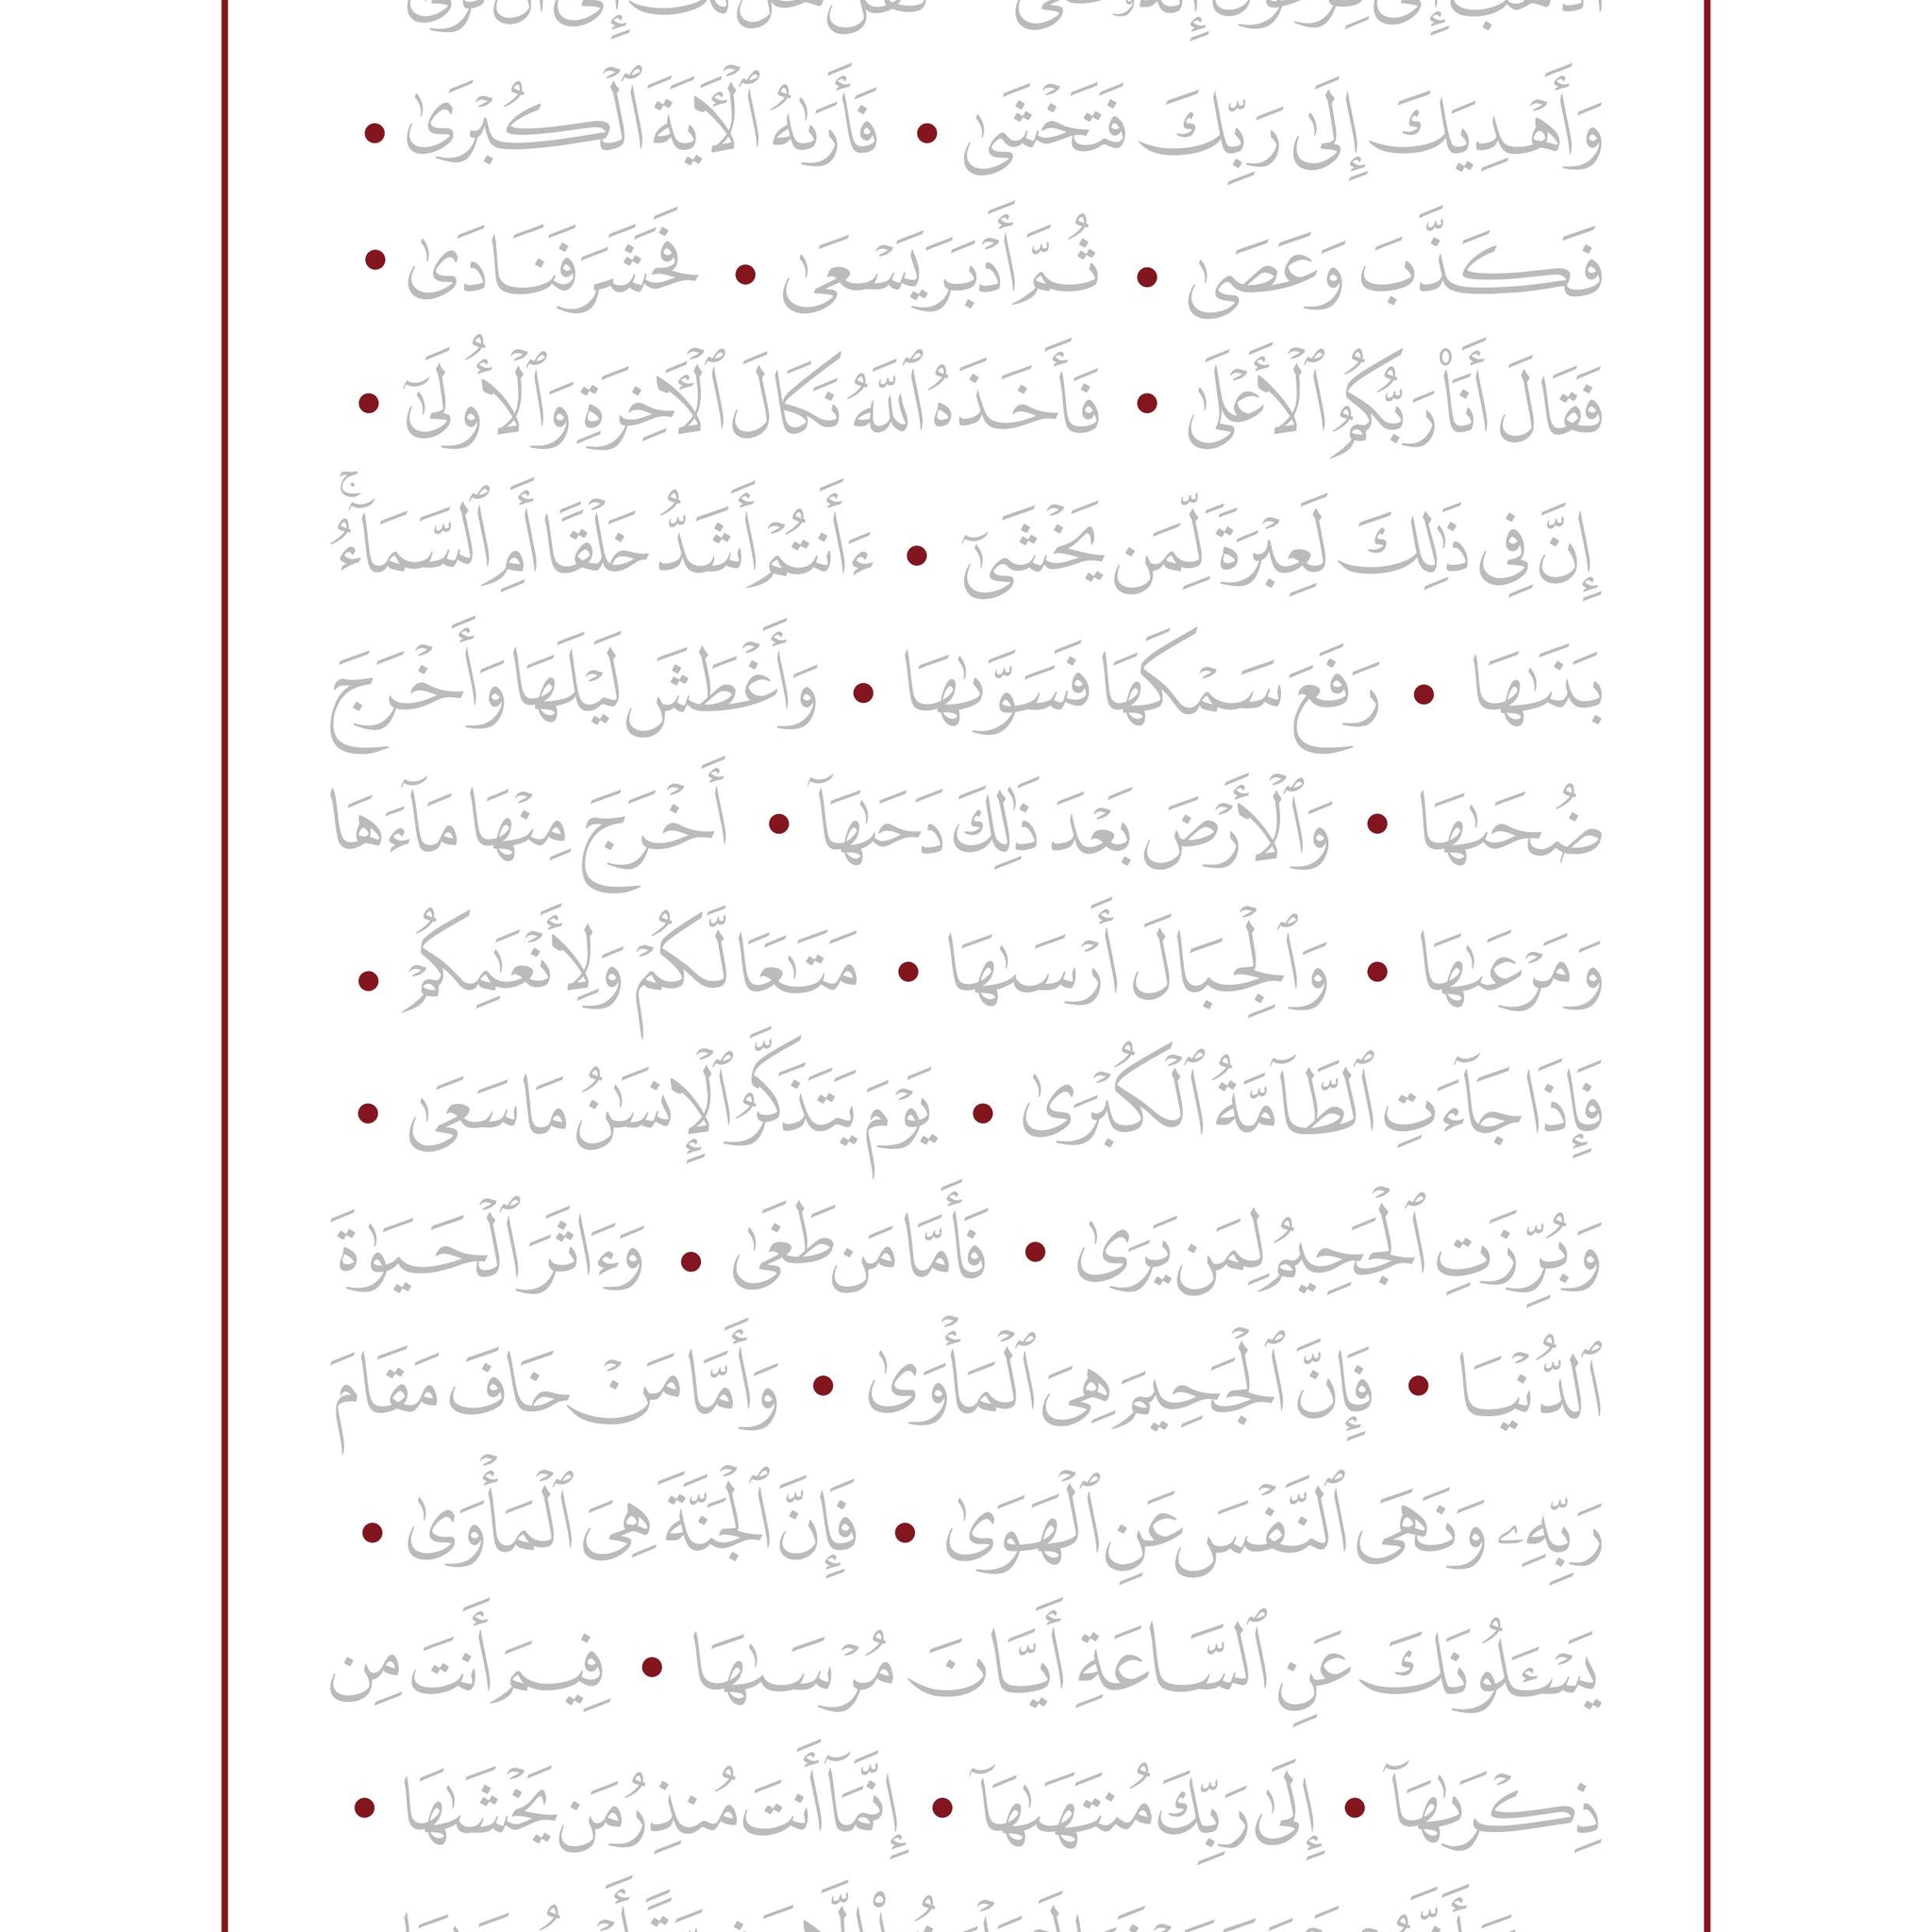 وَأَهْدِيَكَ إِلَىٰ رَبِّكَ فَتَخْشَىٰ • فَأَرَىٰهُ ٱلْأٓيَةَ ٱلْكُبْرَىٰ •
فَكَذَّبَ وَعَصَىٰ • ثُمَّ أَدْبَرَ يَسْعَىٰ • فَحَشَرَ فَنَادَىٰ •
فَقَالَ أَنَا۠ رَبُّكُمُ ٱلْأَعْلَىٰ • فَأَخَذَهُ ٱللَّهُ نَكَالَ ٱلْأٓخِرَةِ وَٱلْأُولَىٰٓ •
إِنَّ فِى ذَٰلِكَ لَعِبْرَةً لِّمَن يَخْشَىٰٓ • ءَأَنتُمْ أَشَدُّ خَلْقًا أَمِ ٱلسَّمَآءُ ۚ
بَنَىٰهَا • رَفَعَ سَمْكَهَا فَسَوَّىٰهَا • وَأَغْطَشَ لَيْلَهَا وَأَخْرَجَ
ضُحَىٰهَا • وَٱلْأَرْضَ بَعْدَ ذَٰلِكَ دَحَىٰهَآ • أَخْرَجَ مِنْهَا مَآءَهَا
وَمَرْعَىٰهَا • وَٱلْجِبَالَ أَرْسَىٰهَا • مَتَٰعًا لَّكُمْ وَلِأَنْعَٰمِكُمْ •
فَإِذَا جَآءَتِ ٱلطَّآمَّةُ ٱلْكُبْرَىٰ • يَوْمَ يَتَذَكَّرُ ٱلْإِنسَٰنُ مَا سَعَىٰ •
وَبُرِّزَتِ ٱلْجَحِيمُ لِمَن يَرَىٰ • فَأَمَّا مَن طَغَىٰ • وَءَاثَرَ ٱلْحَيَوٰةَ
ٱلدُّنْيَا • فَإِنَّ ٱلْجَحِيمَ هِىَ ٱلْمَأْوَىٰ • وَأَمَّا مَنْ خَافَ مَقَامَ
رَبِّهِۦ وَنَهَى ٱلنَّفْسَ عَنِ ٱلْهَوَىٰ • فَإِنَّ ٱلْجَنَّةَ هِىَ ٱلْمَأْوَىٰ •
يَسْـَٔلُونَكَ عَنِ ٱلسَّاعَةِ أَيَّانَ مُرْسَىٰهَا • فِيمَ أَنتَ مِن
ذِكْرَىٰهَآ • إِلَىٰ رَبِّكَ مُنتَهَىٰهَآ • إِنَّمَآ أَنتَ مُنذِرُ مَن يَخْشَىٰهَا •